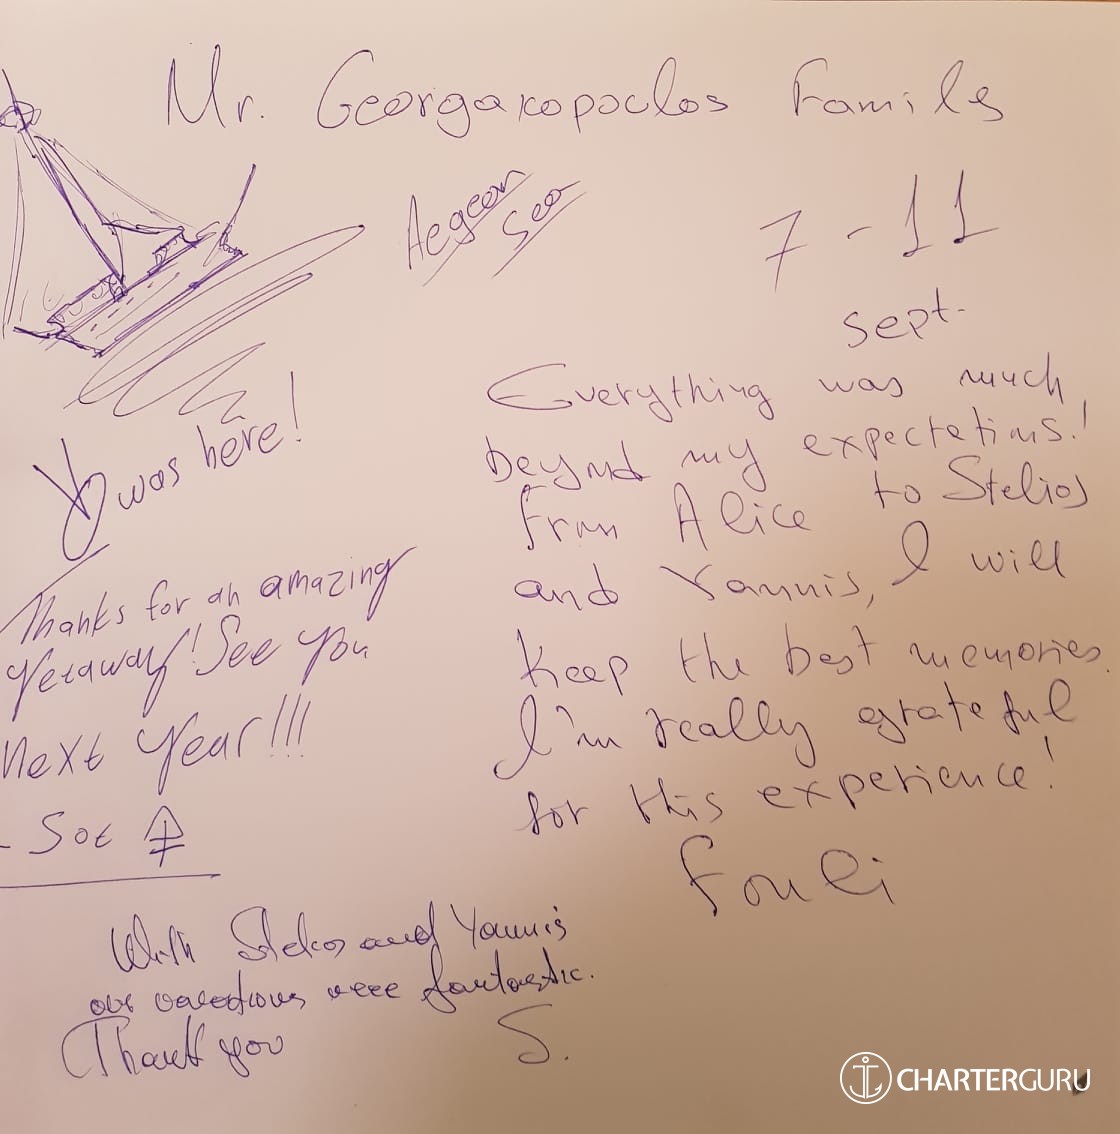 Mr. Georgakopoulos Family
Aegean
Sea
7-11
sept.
was here!
Thanks for an amazing
getaway! See you
next year!!!
- Sot
Everything was much
beyond my expectations!
From Alice to Stelios
and Yannis, I will
keep the best memories.
I'm really grateful
for this experience!
Fouli
With Stelios and Yannis
our vacations were fantastic.
Thank you S.
CHARTERGURU